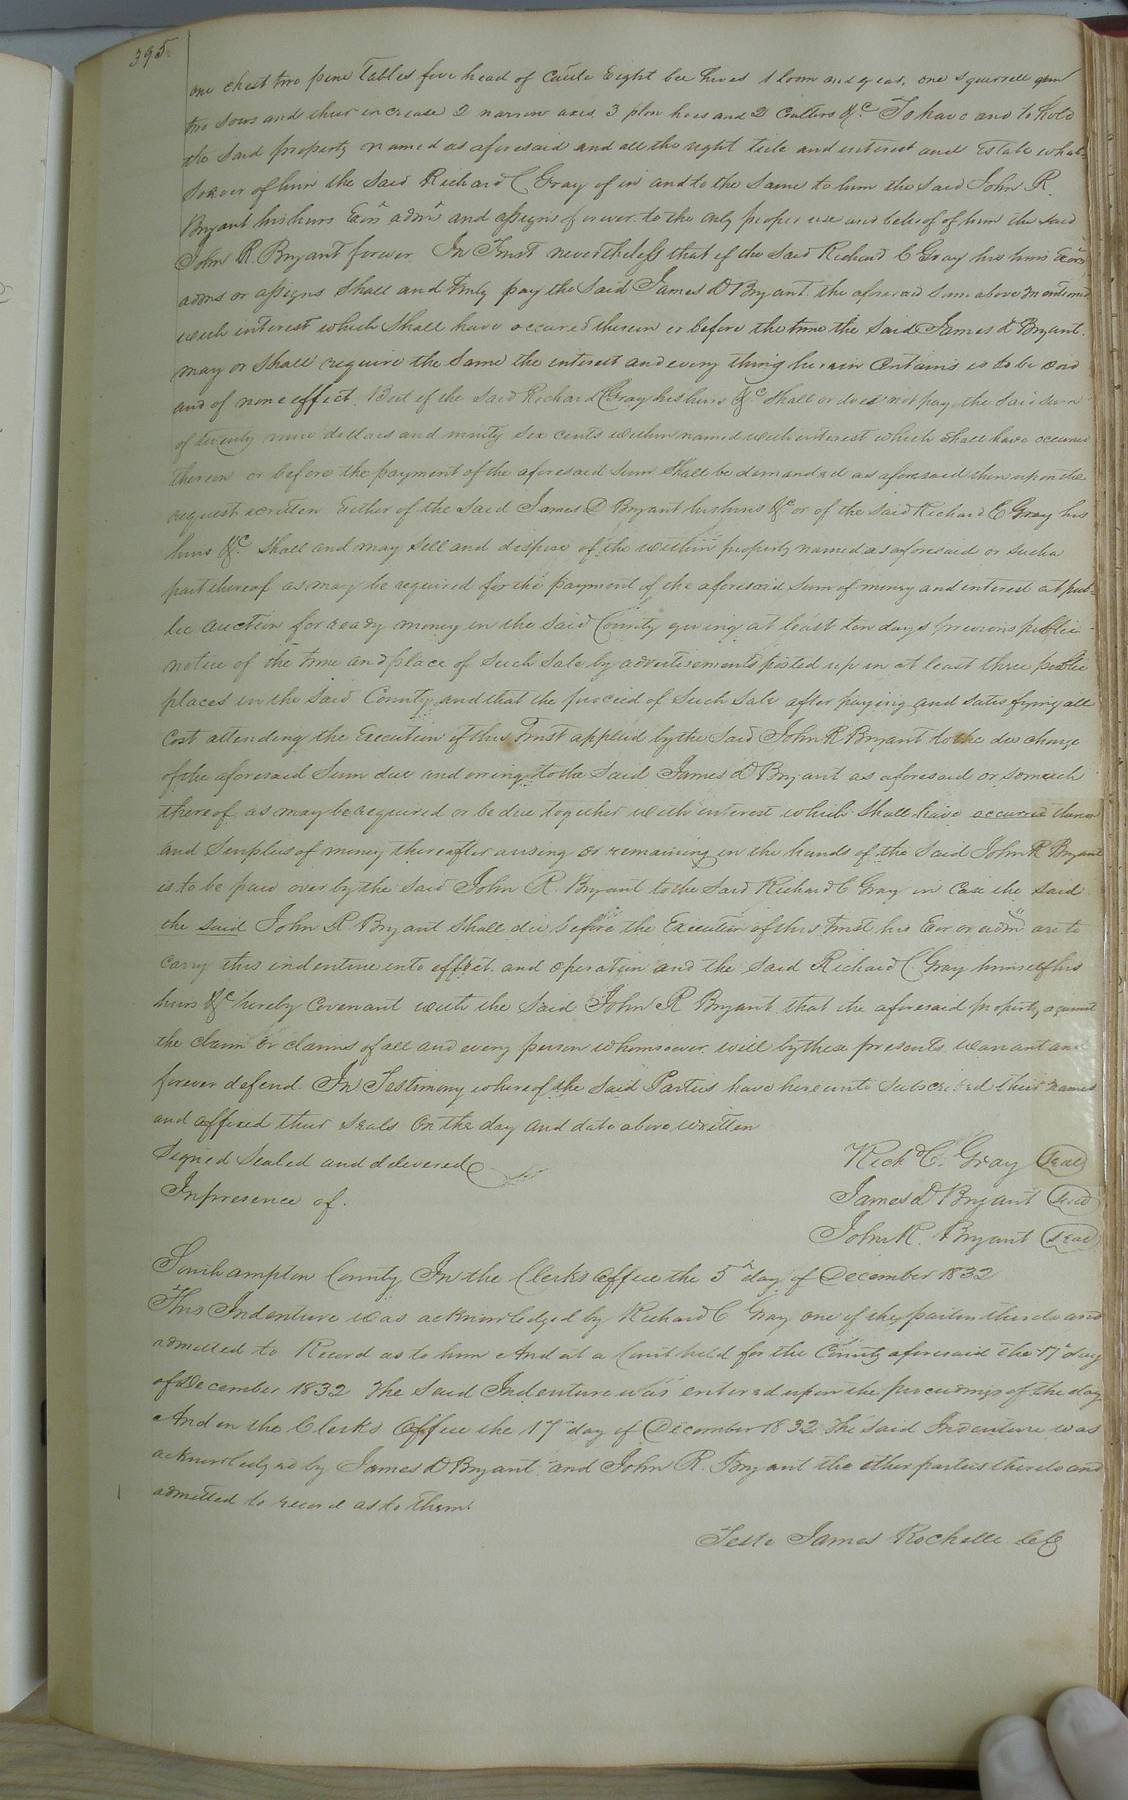 395
one chest two pine Tables five head of Cattle Eight bee hives 1 loom and gear, one Squirrell gun
two sows and their increase 2 narrow axes, 3 plow hoes and 2 Cutters &c. To have and to hold
the said property named as aforesaid and all the right title and interest and Estate what-
soever of him the said Richard C Gray of in and to the same to him the said John R.
Bryant his heirs Exors admrs and assigns forever to the only proper use and behoof of him the said
John R. Bryant forever In Trust nevertheless that if the said Richard C Gray his heirs Exors
adms or assigns shall and truly pay the said James D Bryant the aforesaid sum above mentioned
with interest which shall have accured therein or before the time the said James D Bryant
may or shall require the same the interest and every thing herein Contains is to be void
and of none effect But if the said Richard C Gray his heirs &c shall or does not pay the said sum
of twenty nine dollars and ninity six cents within named with interest which shall have occured
therein or before the payment of the aforesaid sum shall be demanded as aforesaid then upon the
request written Either of the said James D Bryant his heirs &c or of the said Richard C Gray his
heirs &c shall and may sell and dispose of the within property named as aforesaid or such a
part thereof as may be required for the payment of the aforesaid sum of money and interest at pub-
lic auction for ready money in the said County giving at least ten days previous public
notice of the time and place of such sale by advertisements posted up in at least three public
places in the said County and that the proceed of such sale after paying and satisfying all
Cost attending the Execution of this Trust applied by the said John R Bryant to the discharge
of the aforesaid sum due and owing to the said James D Bryant as aforesaid or somuch
thereof as may be required or be due together with interest which shall have occurred therein
and Surplus of money thereafter arising or remaining in the hands of the said John R Bryant
is to be paid over by the said John R. Bryant to the said Richard C Gray in Case the said
the said John R Bryant shall die before the Execution of this Trust his Exr or admr are to
carry this indenture into effect and operation and the said Richard C Gray himself his
heirs &c hereby Covenant with the said John R Bryant that the aforesaid property against
the claim or claims of all and every person whomsoever will by these presents warrant and
forever defend In Testimony whereof the said Parties have hereunto subscribed their names
and affixed their seals on the day and date above written
Signed Sealed and delivered
In presence of.
Richd C. Gray Seal
James D Bryant Seal
John R. Bryant Seal
Southampton County In the Clerks office the 5 day of December 1832
This Indenture was acknowledged by Richard C Gray one of the parties thereto and
admitted to Record as to him And at a Court held for the County aforesaid the 17 day
of December 1832 The said Indenture was entered upon the proceedings of the day
And in the Clerks office the 17 day of December 1832 The said Indenture was
acknowledged by James D Bryant and John R. Bryant the other parties thereto and
admitted to record as to them.
Teste James Rochelle CC